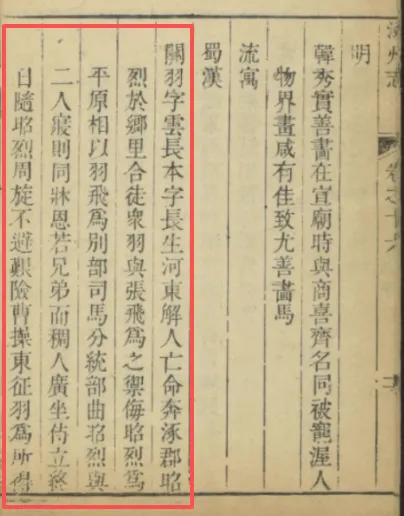 涿州志
卷之十六
明
韓秀實善畫在宣廟時與商喜齊名同被寵渥人
物界畫咸有佳致尤善畵馬
流寓
蜀漢
關羽字雲長本字長生河東解人亡命奔涿郡昭
烈於鄉里合徒衆羽與張飛爲之禦侮昭烈爲
平原相以羽飛爲別部司馬分統部曲昭烈與
二人寢則同牀恩若兄弟而稠人廣坐侍立終
日隨昭烈周旋不避艱險曹操東征羽爲所得